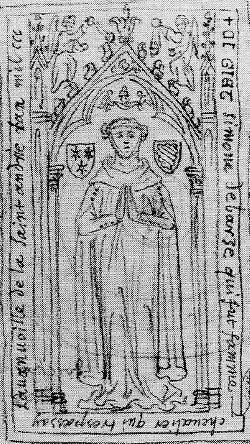 + CI GIST simone De barge qui fut famme a
chevalier qui trespassa
Lauanuoille de la Saint andrie lan mil